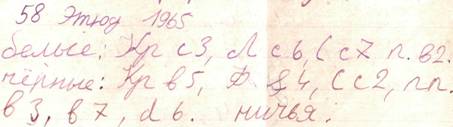 58 Этюд 1965
белые: Кр c3, Л c6, С c7 п. в2.
чёрные: Кр в5, Ф g4, С c2, пп.
в3, в7, d6. ничья.